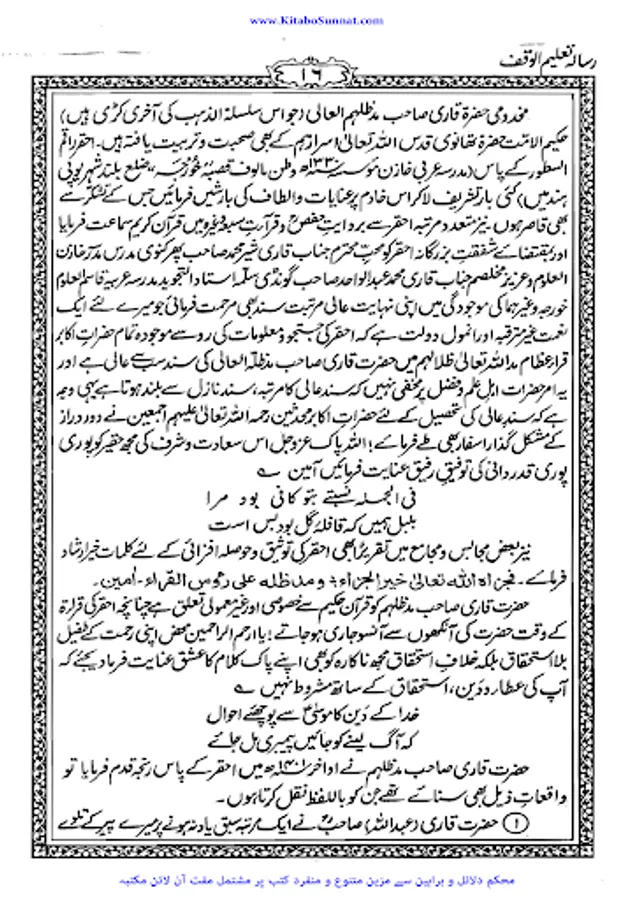 www.KitaboSunnat.com
رسالہ تعلیم الوقف
۱۶
مخدومی حضرۃ قاری صاحب مدظلہم العالی (جو اس سلسلۃ الذہب کی آخری کڑی ہیں)
حکیم الامت حضرۃ تھانوی قدس اللہ تعالیٰ اسرارہم کے بھی صحبت و تربیت یافتہ ہیں۔ احقر راقم
السطور کے پاس (مدرسہ عربی خازن وطن مالوف قصبہ خورجہ، ضلع بلند شہر یوپی
ہند میں) کئی بار تشریف لا کر اس خادم پر عنایات و الطاف کی بارشیں فرمائیں جس کے تشکر سے
بھی قاصر ہوں۔ نیز متعدد مرتبہ احقر سے بروایتِ حفص و قرآءتِ سبعہ وغیرہ میں قرآن کریم سماعت فرمایا
اور بمقتضائے شفقتِ بزرگانہ احقر کو محبِ محترم جناب قاری شیر محمد صاحب مدرس مدرسہ خازن
العلوم و عزیز مخلصم جناب قاری محمد عبدالواحد صاحب گونڈی سلمہ استاد التجوید مدرسہ عربیہ قاسم العلوم
خورجہ وغیرہما کی موجودگی میں اپنی نہایت عالی مرتبت سند بھی مرحمت فرمائی جو میرے لئے ایک
نعمت غیر مترقبہ اور انمول دولت ہے کہ احقر کی جستجو و معلومات کی رو سے موجودہ تمام حضرات اکابر
قراء عظام مد اللہ تعالیٰ ظلالہم میں حضرت قاری صاحب مدظلہ العالی کی سند سب سے عالی ہے اور
یہ امر حضرات اہلِ علم و فضل پر مخفی نہیں کہ سند عالی کا مرتبہ، سند نازل سے بلند ہوتا ہے یہی وجہ
ہے کہ سند عالی کی تحصیل کے لئے حضرات اکابر محدثین رحمہ اللہ تعالیٰ علیہم اجمعین نے دور دراز
کے مشکل گذار اسفار بھی طے فرمائے! اللہ پاک عزوجل اس سعادت و شرف کی مجھ حقیر کو پوری
پوری قدر دانی کی توفیق رفیق عنایت فرمائیں آمین ؎
فی الجملہ نسبتے بتو کافی بود مرا
بلبل ہمیں کہ قافیۂ گل بود بس است
نیز بعض مجالس و مجامع میں تقریراً بھی احقر کی توثیق و حوصلہ افزائی کے لئے کلمات خیر ارشاد
فرمائے۔ فجزاہ اللہ تعالیٰ خیر الجزاء و مد ظلہ علی رءوس القراء۔ اٰمین۔
حضرت قاری صاحب مدظلہم کو قرآن حکیم سے خصوصی اور غیر معمولی تعلق ہے چنانچہ احقر کی قراءۃ
کے وقت حضرت کی آنکھوں سے آنسو جاری ہو جاتے! یا ارحم الراحمین محض اپنی رحمت کے طفیل
بلا استحقاق بلکہ خلافِ استحقاق مجھ ناکارہ کو بھی اپنے پاک کلام کا عشق عنایت فرما دیجئے کہ
آپ کی عطار و دَین، استحقاق کے ساتھ مشروط نہیں ؎
خدا کے دَین کا موسٰیؑ سے پوچھئے احوال
کہ آگ لینے کو جائیں پیمبری مل جائے
حضرت قاری صاحب مدظلہم نے اواخر ۱۴۰۱ھ میں احقر کے پاس رنجہ قدم فرمایا تو
واقعاتِ ذیل بھی سنائے تھے جن کو باللفظ نقل کرتا ہوں۔
① حضرت قاری (عبداللہ) صاحبؒ نے ایک مرتبہ سبق یاد نہ ہونے پر میرے پیر کے تلوے
محکم دلائل و براہین سے مزین متنوع و منفرد کتب پر مشتمل مفت آن لائن مکتبہ